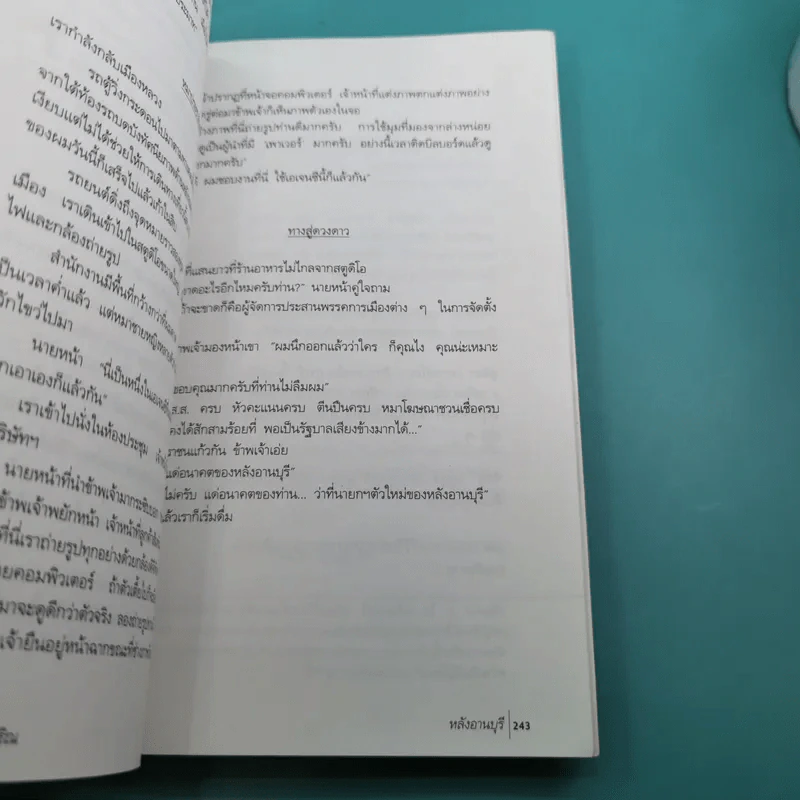 เรากำลังกลับเมืองหลวง
รถตู้วิ่งกระดอนไปมา
จากใต้ท้องรถบดบังทัศนียภาพ
เงียบแต่ไม่ได้ช่วยให้การเดินทาง
ของผมวันนี้ก็เสร็จไปแล้ว
รถยนต์ดิ่งถึงจุดหมาย
เมือง เราเดินเข้าไปในสตูดิโอ
ไฟและกล้องถ่ายรูป
สำนักงานมีพื้นที่กว้างกว่าที่
เป็นเวลาค่ำแล้ว แต่หมาชายหญิง
วักไขว่ไปมา
นายหน้า "นี่เป็นหนึ่งใน
กเอาเองก็แล้วกัน"
เราเข้าไปนั่งในห้องประชุม
ริษัทฯ
นายหน้าที่นำข้าพเจ้ามากระซิบ
ข้าพเจ้าพยักหน้า เจ้าหน้าที่
ที่นี่เราถ่ายรูปทุกอย่างด้วยกล้อง
ยคอมพิวเตอร์ ถ้าตัว
มาจะดูดีกว่าตัวจริง ลองถ่ายรูป
เจ้ายืนอยู่หน้าฉากขณะที่
ปรากฏที่หน้าจอคอมพิวเตอร์ เจ้าหน้าที่แต่งภาพตกแต่งภาพอย่าง
ยู่ต่อมาข้าพเจ้าก็เห็นภาพตัวเองในจอ
างภาพที่นี่ถ่ายรูปท่านดีมากครับ การใช้มุมที่มองจากล่างหน่อย
ดูเป็นผู้นำที่มี เพาเวอร์ มากครับ อย่างนี้เวลาติดบิลบอร์ดแล้วดู
กมากครับ"
ผมชอบงานที่นี่ ใช้เอเจนซีนี้ก็แล้วกัน"
ทางสู่ดวงดาว
ที่แสนยาวที่ร้านอาหารไม่ไกลจากสตูดิโอ
าดอะไรอีกไหมครับท่าน?" นายหน้าคู่ใจถาม
าจะขาดก็คือผู้จัดการประสานพรรคการเมืองต่าง ๆ ในการจัดตั้ง
พเจ้ามองหน้าเขา "ผมนึกออกแล้วว่าใคร ก็คุณไง คุณน่ะเหมาะ
ขอบคุณมากครับที่ท่านไม่ลืมผม"
ส.ส. ครบ หัวคะแนนครบ ตีนปืนครบ หมาโฆษณาชวนเชื่อครบ
องได้สักสามร้อยที่ พอเป็นรัฐบาลเสียงข้างมากได้..."
ราชนแก้วกัน ข้าพเจ้าเอ่ย
แด่อนาคตของหลังอานบุรี"
ไม่ครับ แด่อนาคตของท่าน... ว่าที่นายกฯตัวใหม่ของหลังอานบุรี"
ล้วเราก็เริ่มดื่ม
หลังอานบุรี 243